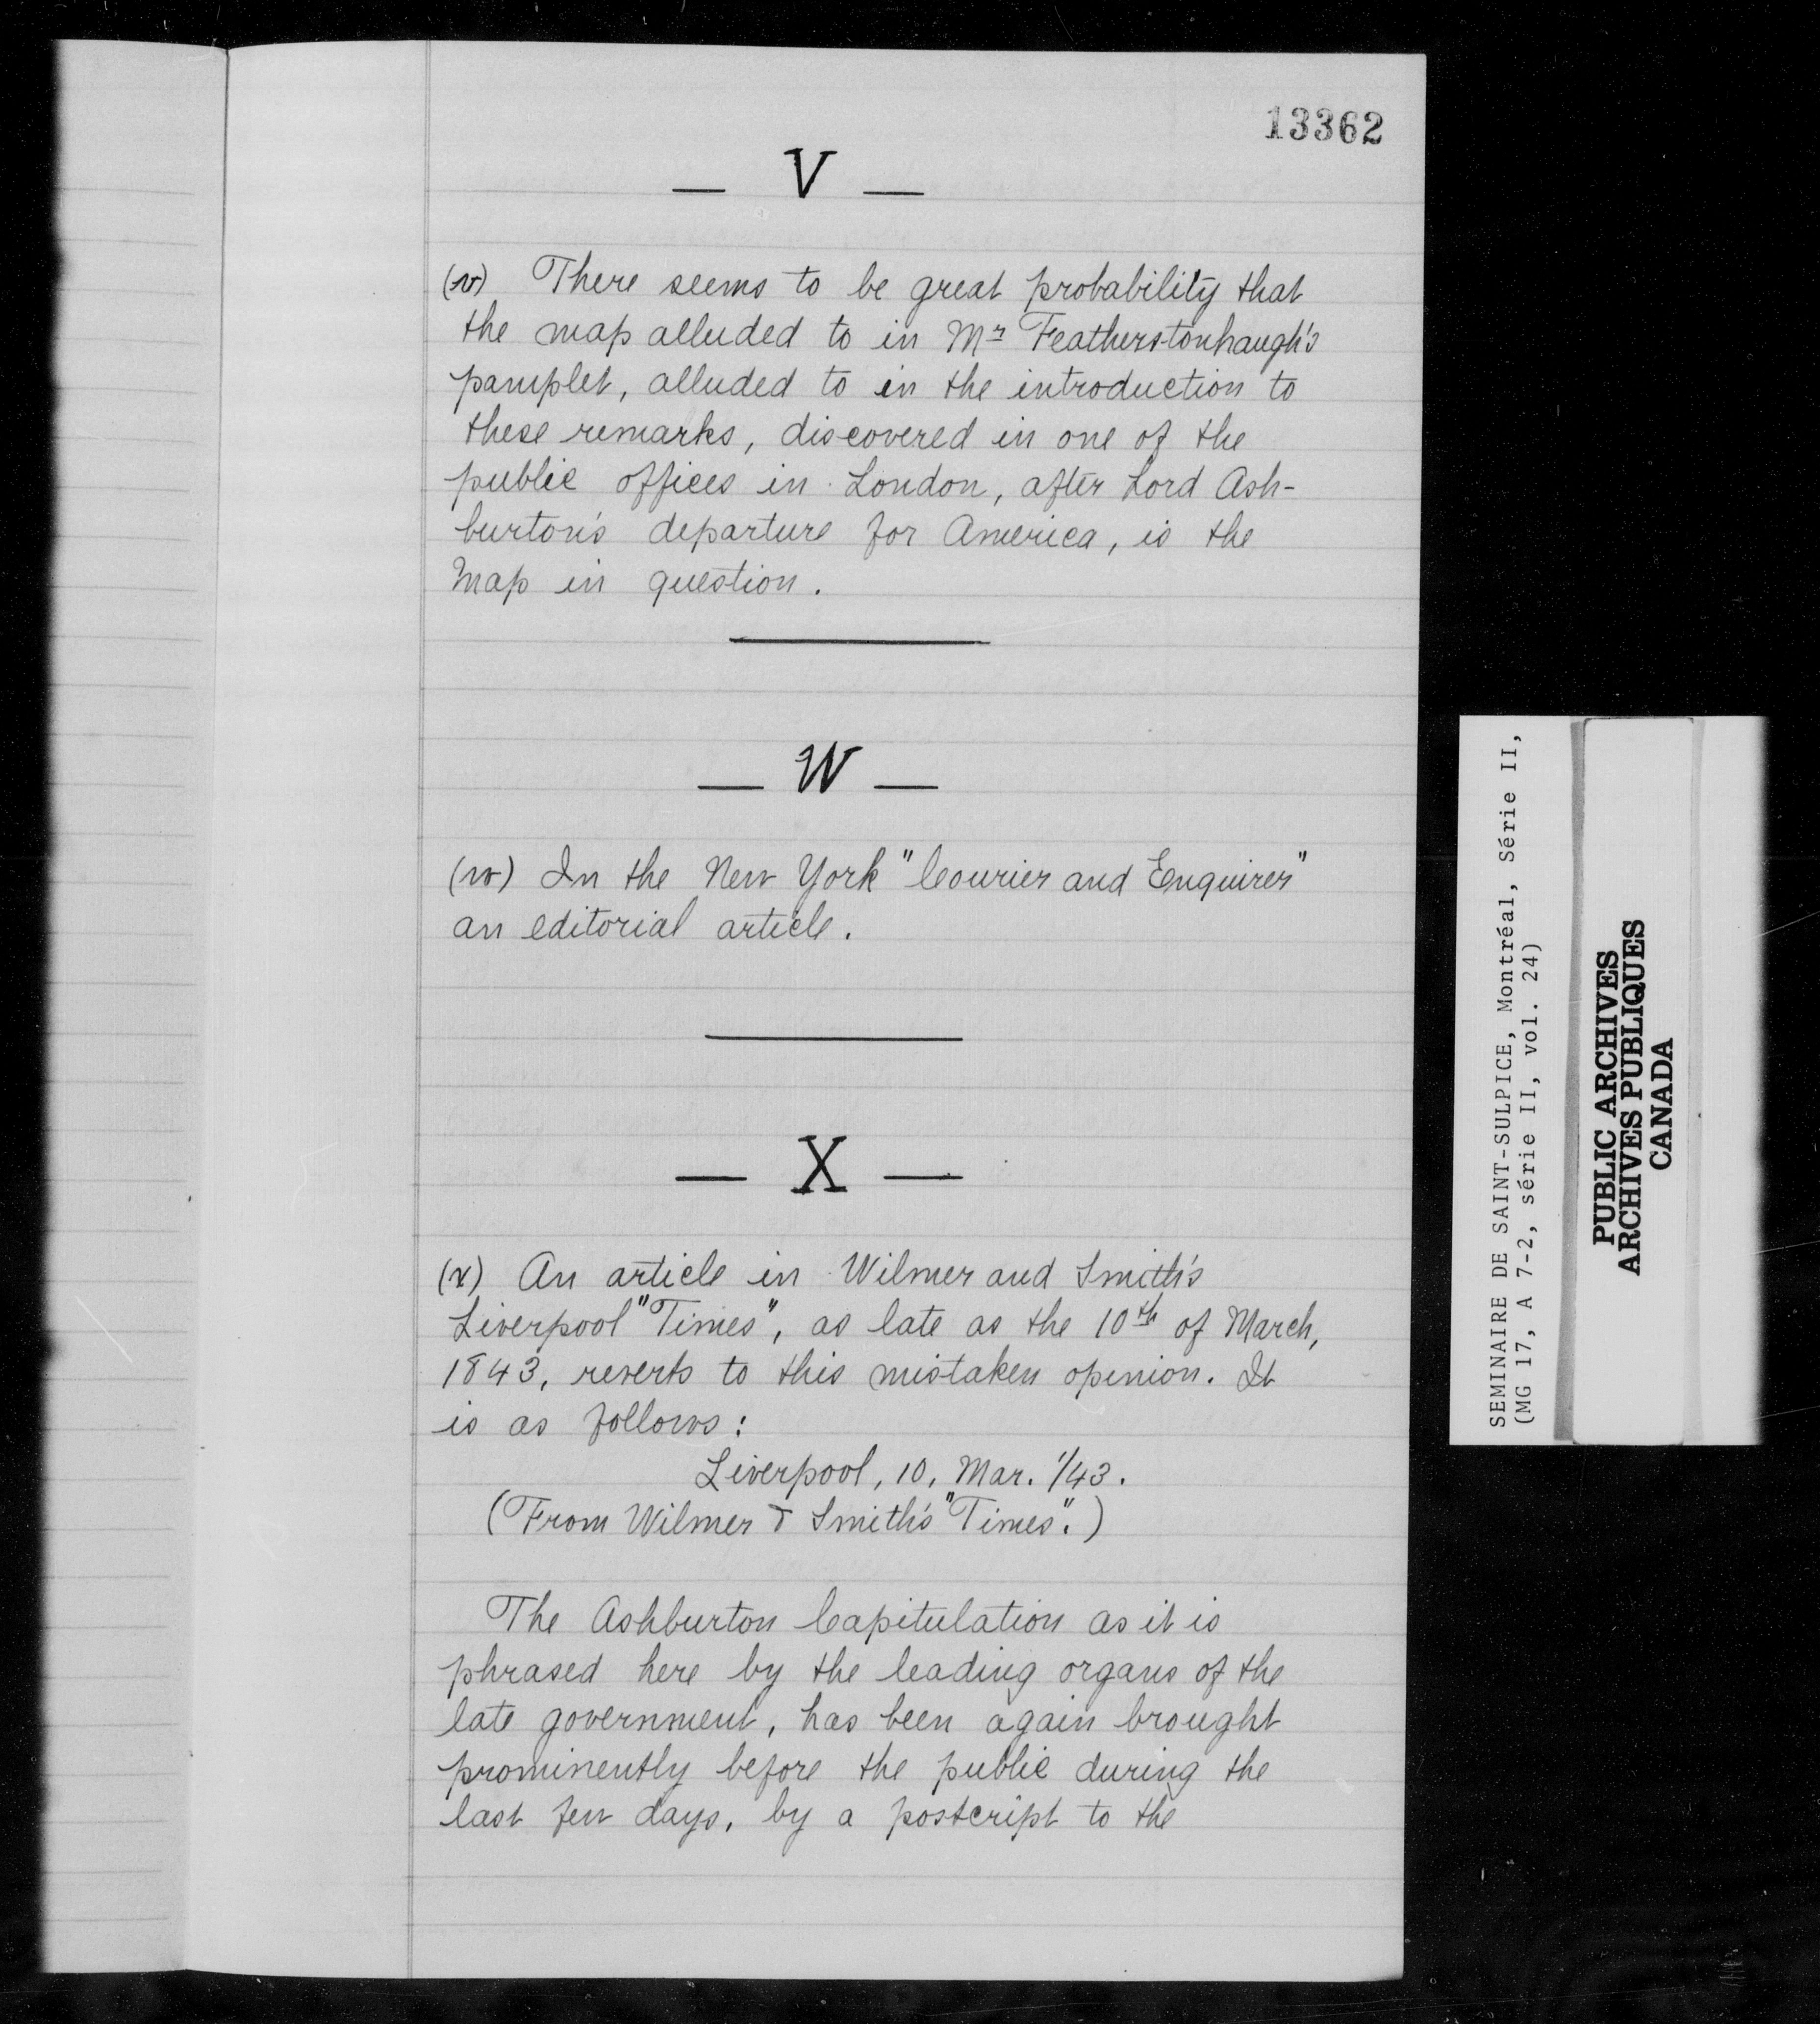 13362
— V —
(v) There seems to be great probability that
the map alluded to in Mr Featherstonhaugh's
pamplet, alluded to in the introduction to
these remarks, discovered in one of the
public offices in London, after Lord Ash-
burton's departure for America, is the
Map in question.
— W —
(w) In the New York "Courier and Enquirer"
an editorial article.
— X —
(x) An article in Wilmer and Smith's
Liverpool "Times", as late as the 10th of March,
1843, reverts to this mistaken opinion. It
is as follows:
Liverpool, 10, Mar. 1/43.
(From Wilmer & Smith's "Times".)
The Ashburton Capitulation as it is
phrased here by the leading organs of the
late government, has been again brought
prominently before the public during the
last few days, by a postcript to the
SEMINAIRE DE SAINT-SULPICE, Montréal, Série II,
(MG 17, A 7-2, série II, vol. 24)
PUBLIC ARCHIVES
ARCHIVES PUBLIQUES
CANADA